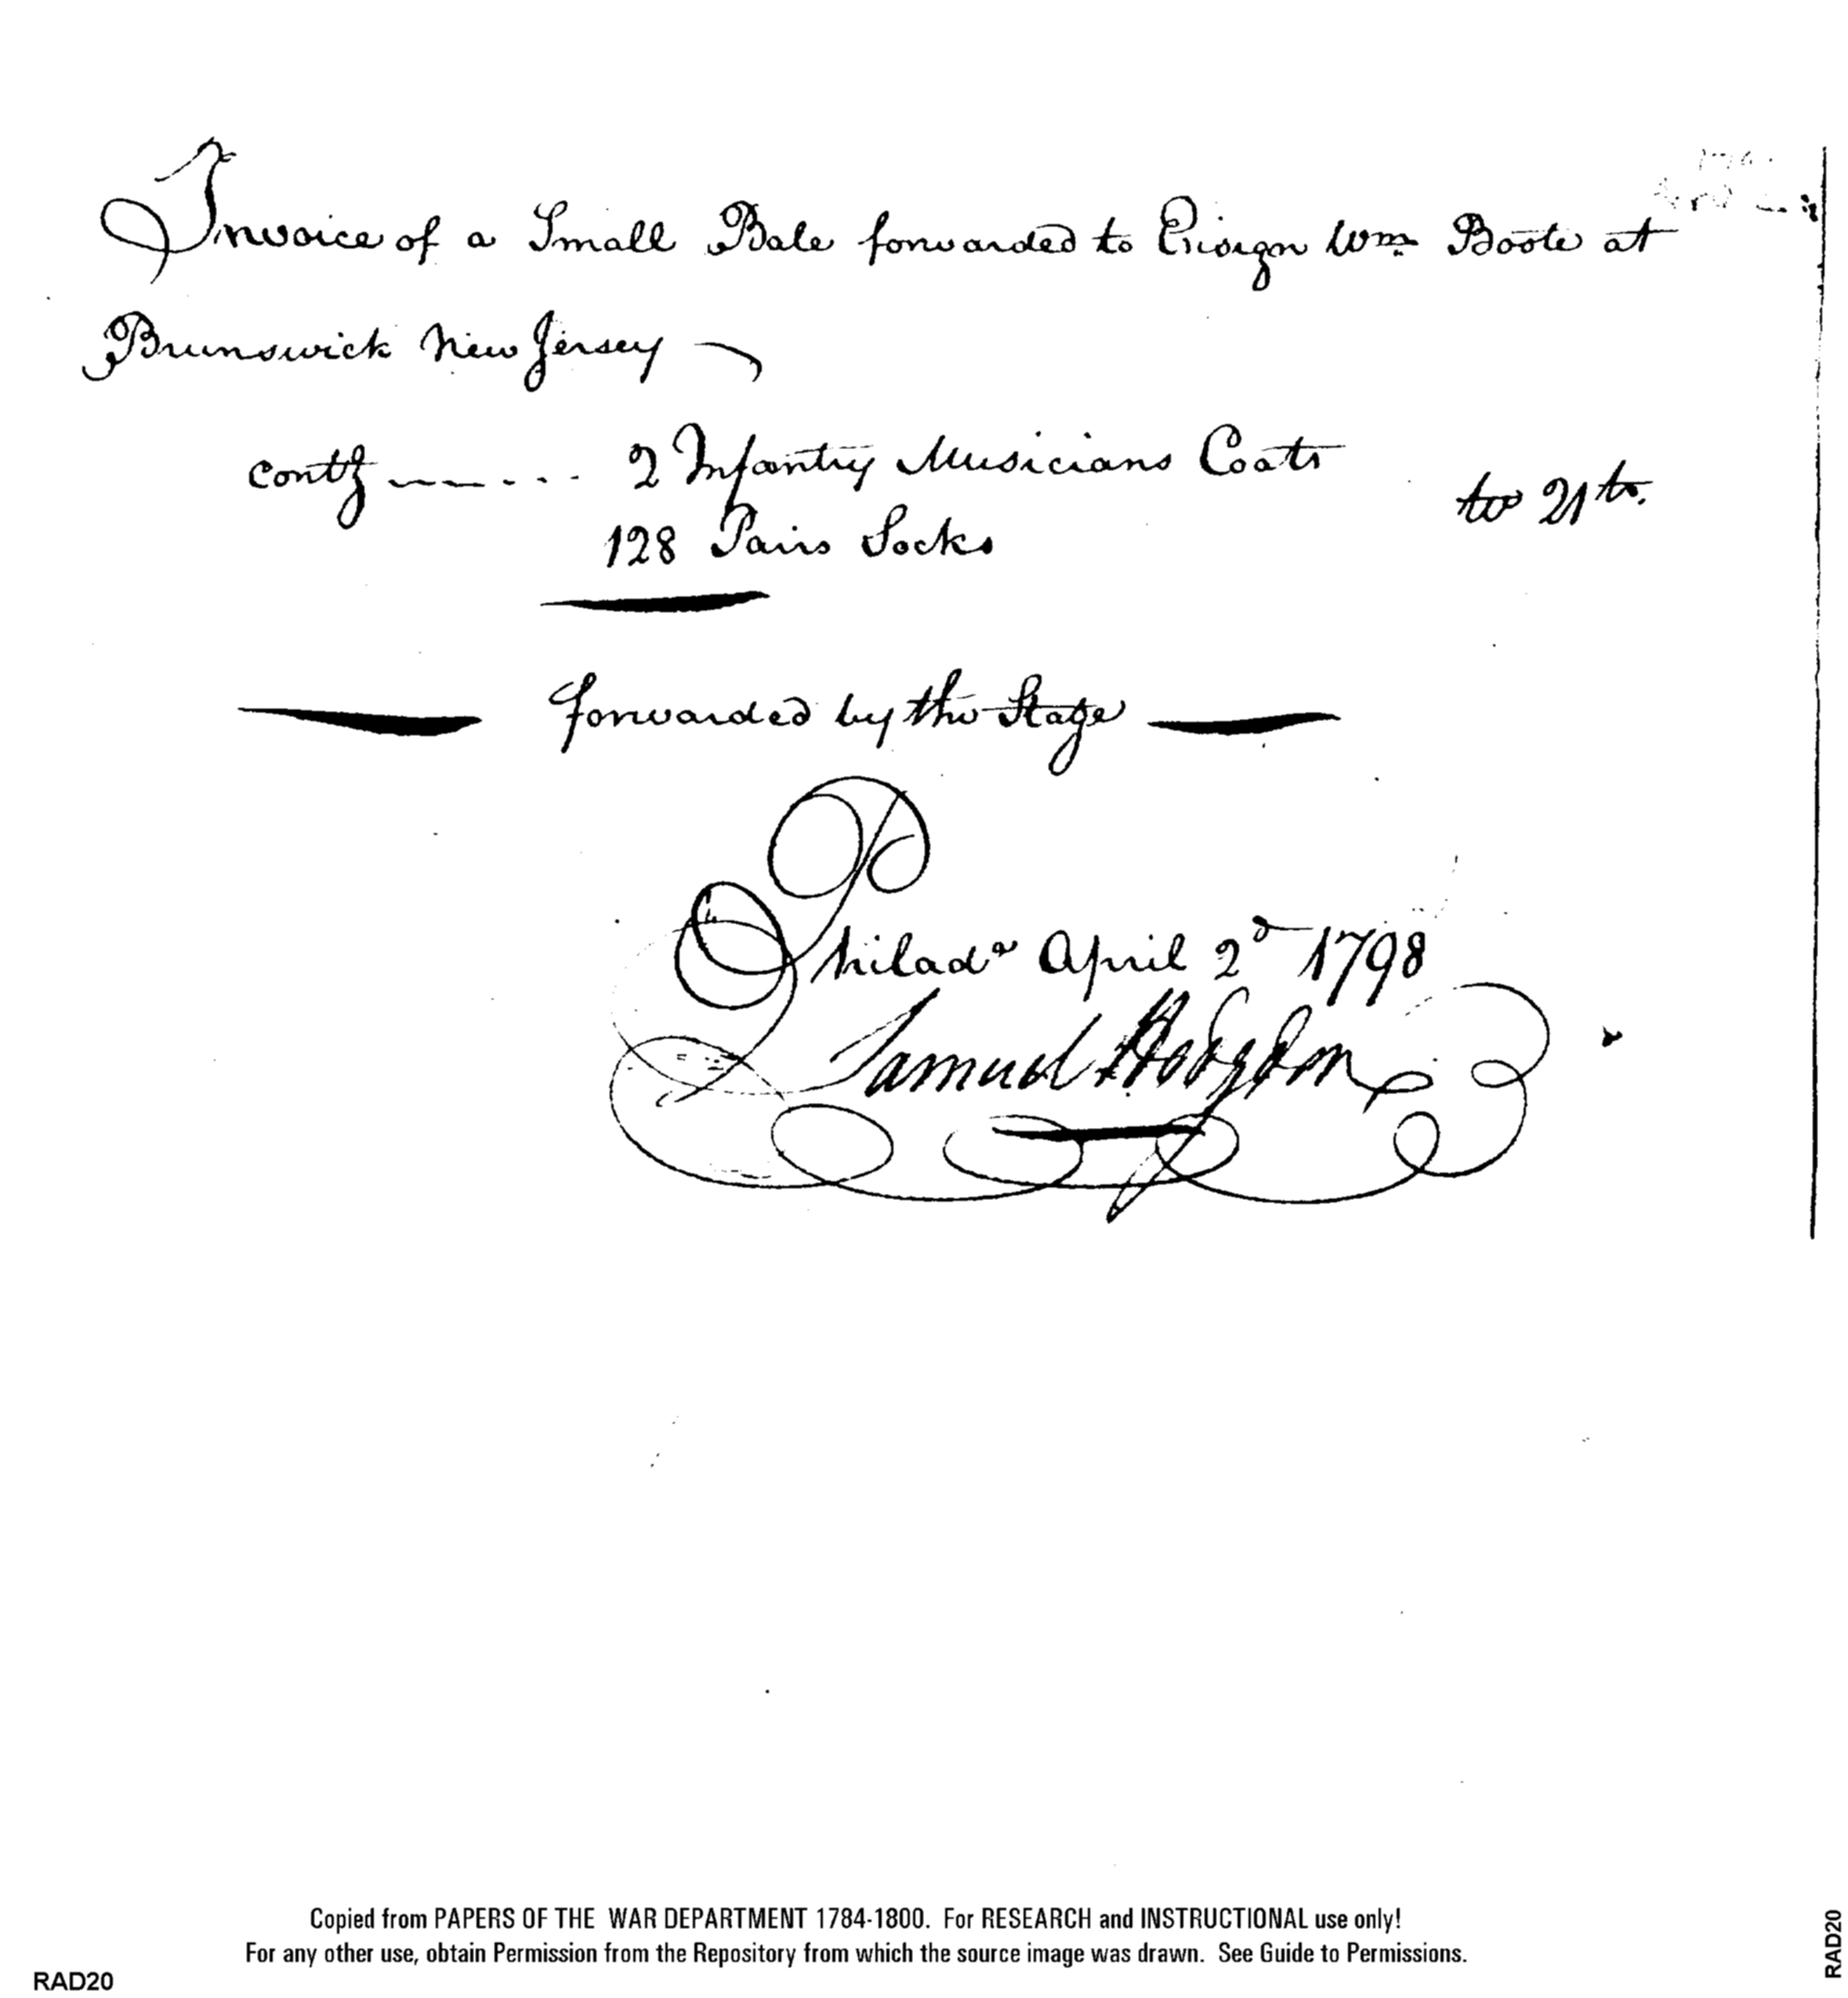 Invoice of a Small Bale forwarded to Ensign Wm Boote at
Brunswick New Jersey
contg 2 Infantry Musicians Coats
128 Pairs Socks
forwarded by the Stage
Philada April 2d 1798
Samuel Hodgdon
Copied from PAPERS OF THE WAR DEPARTMENT 1784-1800. For RESEARCH and INSTRUCTIONAL use only!
For any other use, obtain Permission from the Repository from which the source image was drawn. See Guide to Permissions.
RAD20
RAD20